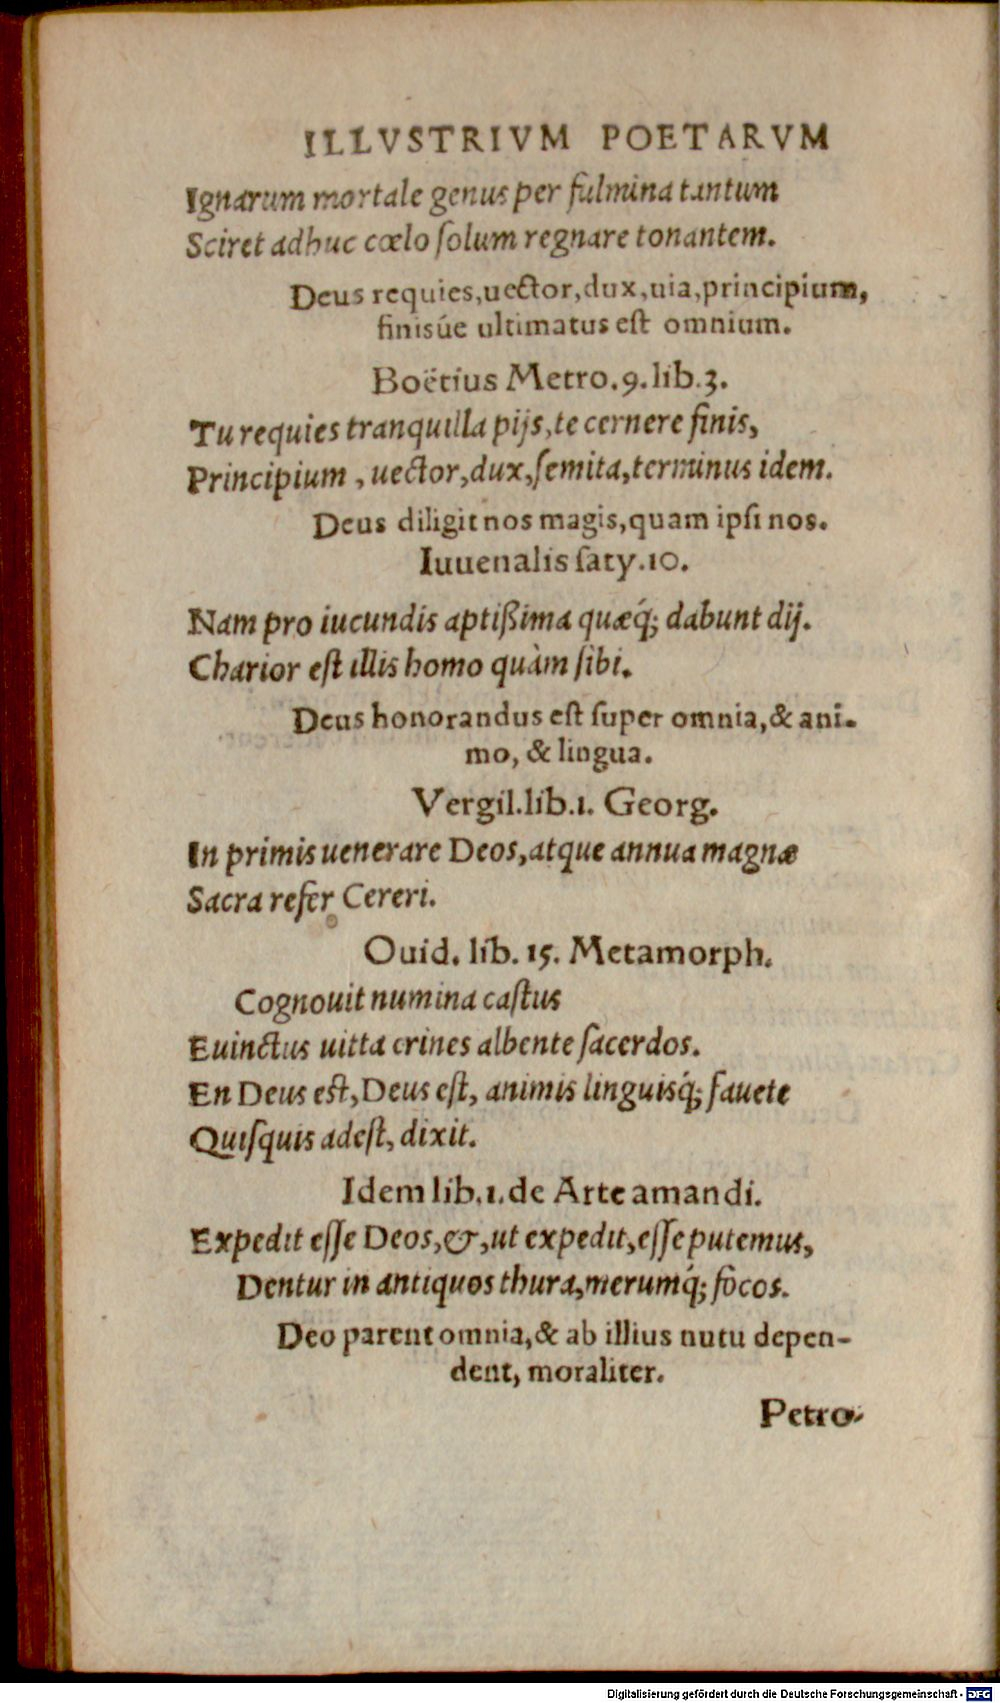 ILLVSTRIVM POETARVM
Ignarum mortale genus per fulmina tantum
Sciret adhuc cœlo ſolum regnare tonantem.
Deus requies,uector,dux,uia,principium,
finisúe ultimatus eſt omnium.
Boëtius Metro.9.lib.3.
Tu requies tranquilla pijs,te cernere finis,
Principium , uector,dux,ſemita,terminus idem.
Deus diligit nos magis,quam ipſi nos.
Iuuenalis ſaty.10.
Nam pro iucundis aptißima quæq́; dabunt dij.
Charior eſt illis homo quàm ſibi.
Deus honorandus eſt ſuper omnia,& ani-
mo, & lingua.
Vergil.lib.1. Georg.
In primis uenerare Deos,atque annua magnæ
Sacra refer Cereri.
Ouid. lib. 15. Metamorph.
Cognouit numina caſtus
Euinctus uitta crines albente ſacerdos.
En Deus eſt,Deus eſt, animis linguisq́; fauete
Quiſquis adeſt, dixit.
Idem lib.1.de Arte amandi.
Expedit eſſe Deos,&,ut expedit,eſſe putemus,
Dentur in antiquos thura,merumq́; focos.
Deo parent omnia,& ab illius nutu depen-
dent, moraliter.
Petro-
Digitalisierung gefördert durch die Deutsche Forschungsgemeinschaft - DFG